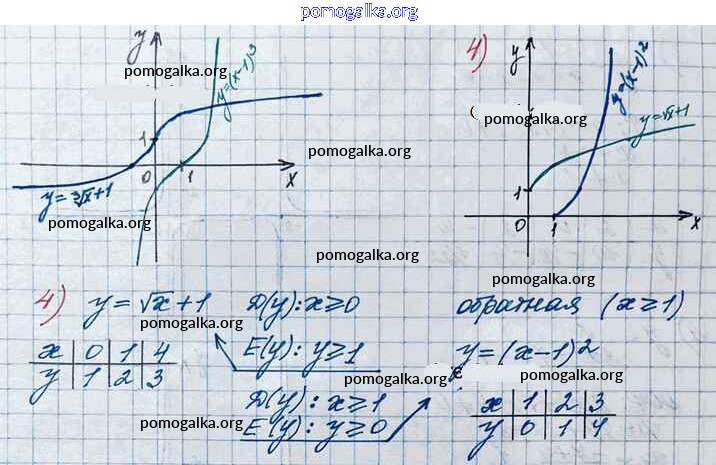 pomogalka.org
y
pomogalka.org
y=(x-1)³
1
0
1
x
y=∛x+1
pomogalka.org
pomogalka.org
4)
y
y=(x-1)²
pomogalka.org
y=√x+1
1
0
1
x
pomogalka.org
pomogalka.org
4) y=√x+1 D(y): x≥0
pomogalka.org
x | 0 | 1 | 4
y | 1 | 2 | 3
E(y): y≥1
D(y): x≥1
pomogalka.org
E(y): y≥0
обратная (x≥1)
y=(x-1)²
pomogalka.org
pomogalka.org
x | 1 | 2 | 3
y | 0 | 1 | 4